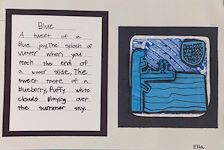 Blue
A tweet of a
blue jay, The splash of
water when you
reach the end of
a water slide, The
sweet taste of a
blueberry, Puffy white
clouds flying over
the summer sky.
Ella